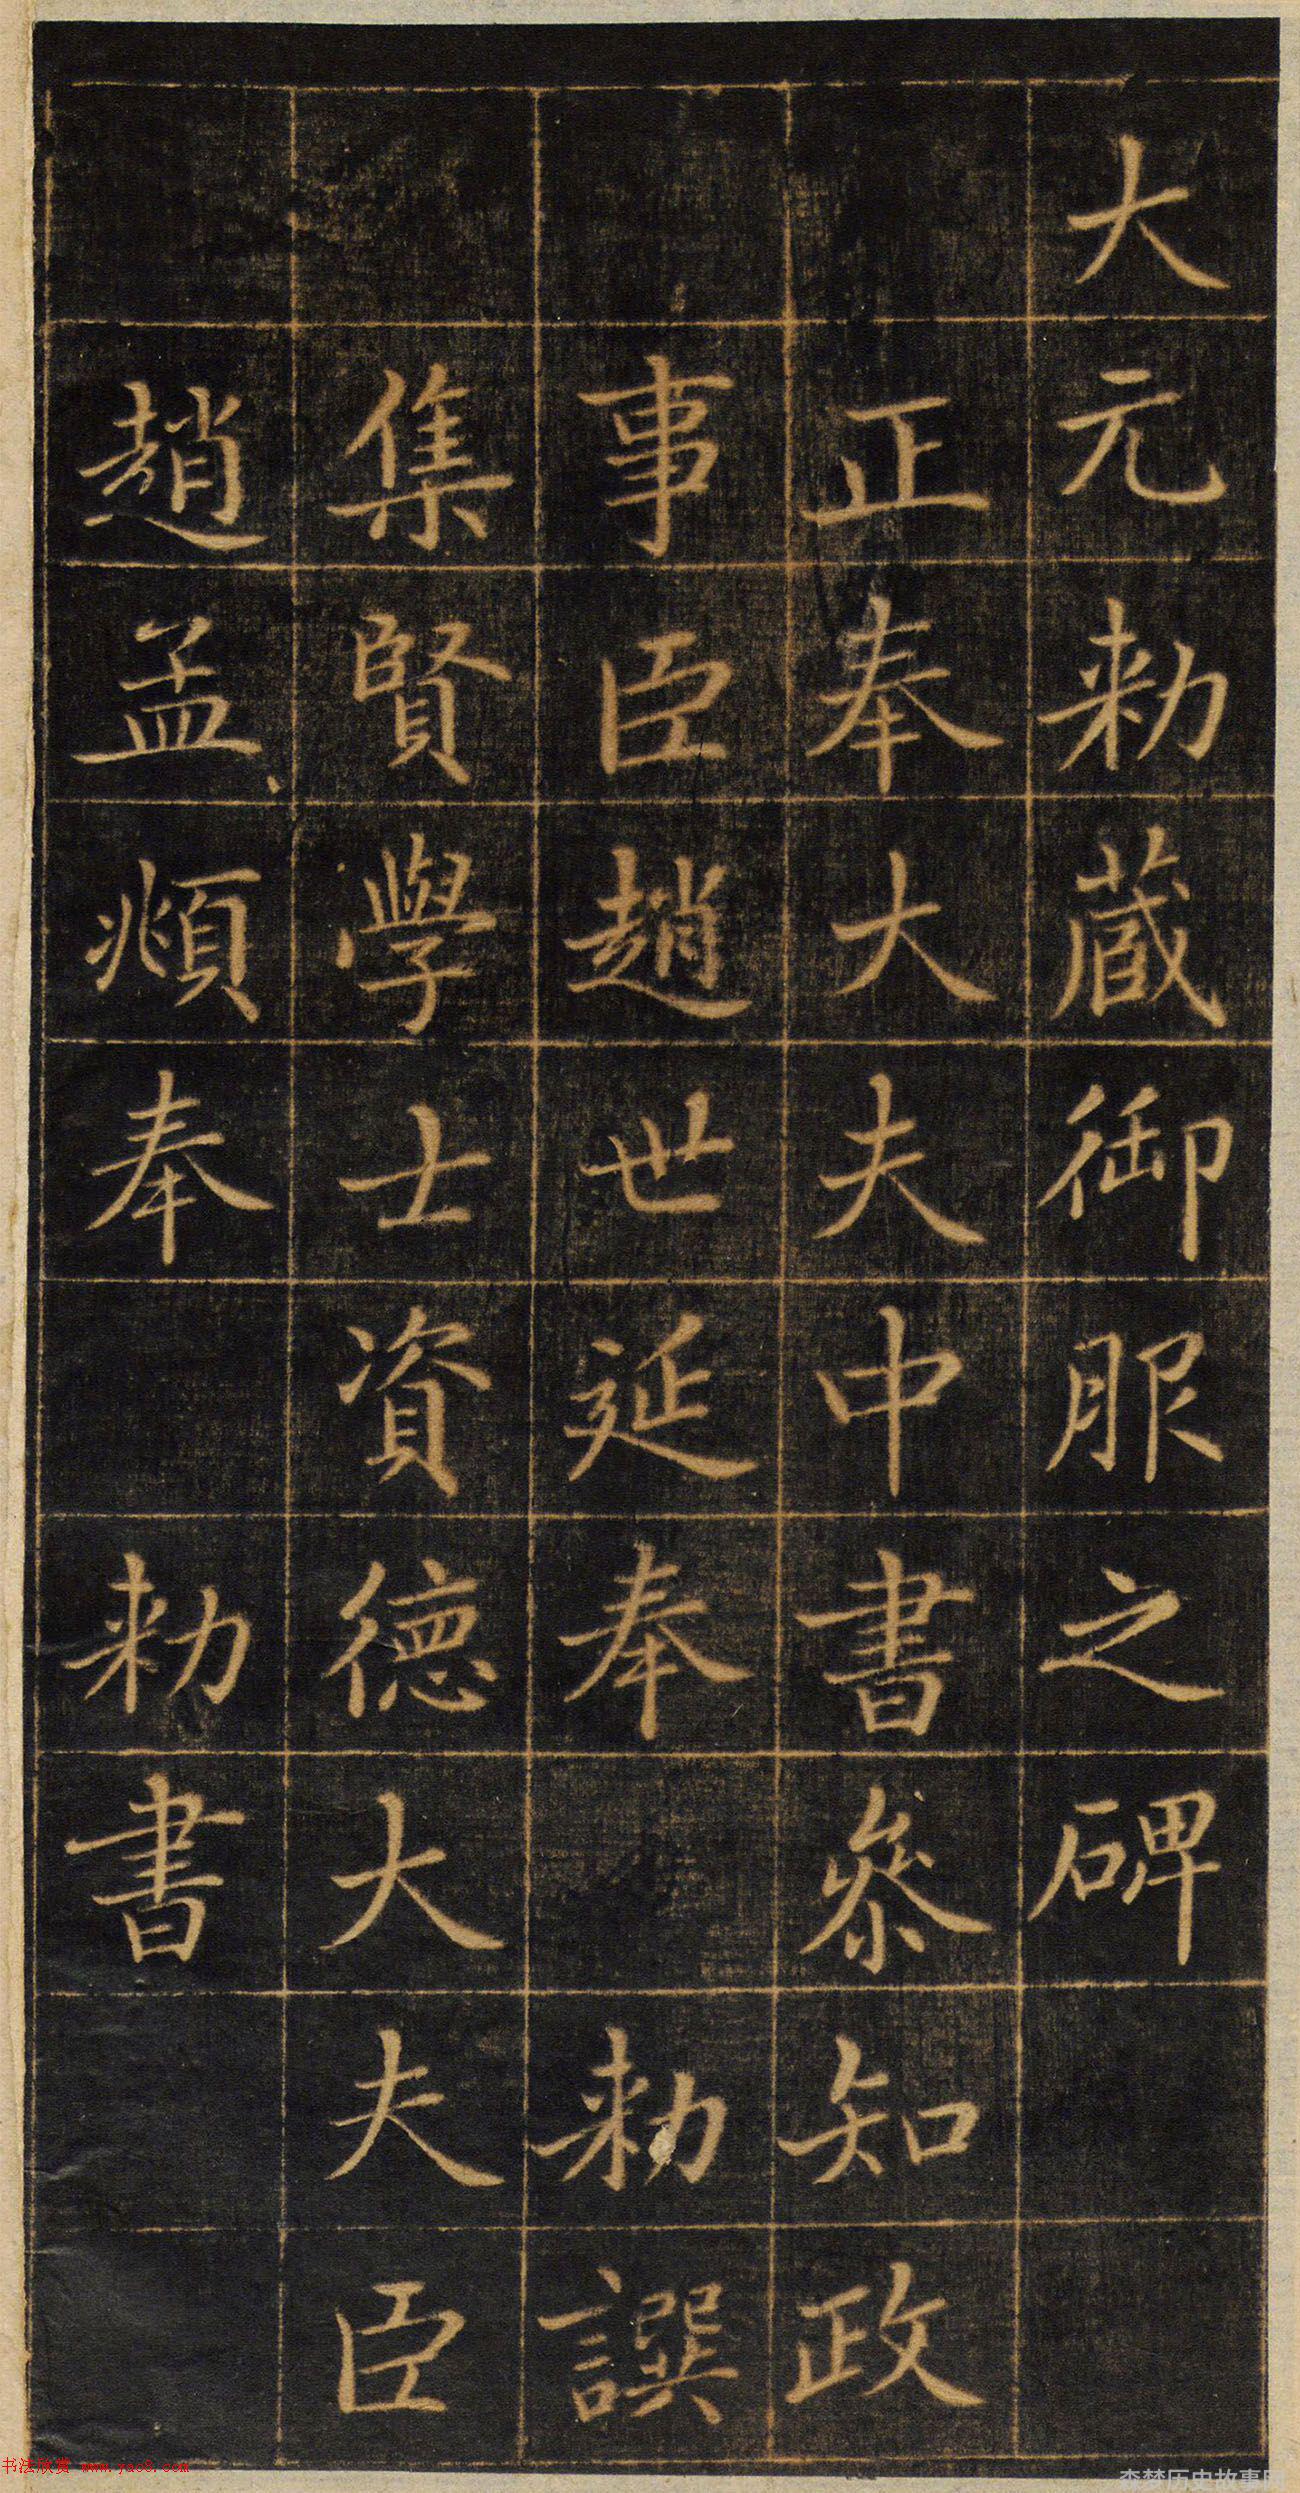 大元勑藏御服之碑
正奉大夫中書參知政
事臣趙世延奉勑譔
集賢學士資德大夫臣
趙孟頫奉勑書
书法欣赏 www.yac8.com